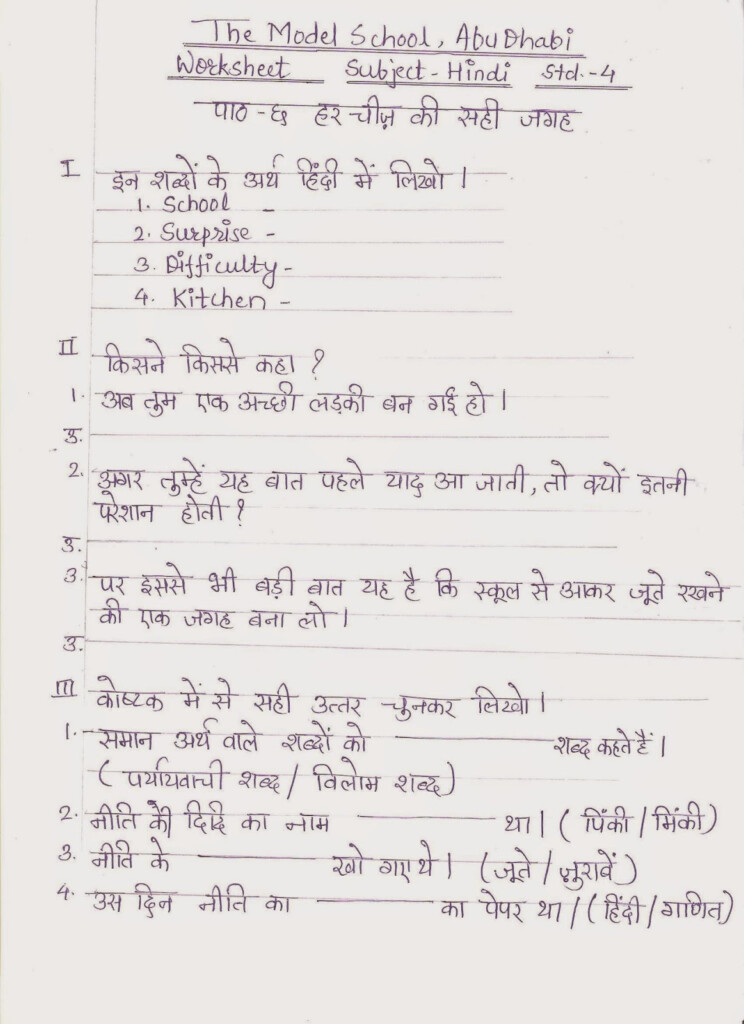 The Model School, Abu Dhabi
Worksheet Subject - Hindi Std. - 4
पाठ - छ हर चीज़ की सही जगह
I इन शब्दों के अर्थ हिंदी में लिखो ।
1. School -
2. Surprise -
3. Difficulty -
4. Kitchen -
II किसने किससे कहा ?
1. अब तुम एक अच्छी लड़की बन गई हो ।
उ.
2. अगर तुम्हें यह बात पहले याद आ जाती, तो क्यों इतनी
परेशान होती ?
उ.
3. पर इससे भी बड़ी बात यह है कि स्कूल से आकर जूते रखने
की एक जगह बना लो ।
उ.
III कोष्टक में से सही उत्तर चुनकर लिखो ।
1. समान अर्थ वाले शब्दों को __________ शब्द कहते हैं ।
( पर्यायवाची शब्द / विलोम शब्द )
2. नीति की दिदि का नाम __________ था । ( पिंकी / मिंकी )
3. नीति के __________ खो गए थे । ( जूते / जुरावें )
4. उस दिन नीति का __________ का पेपर था । ( हिंदी / गणित )